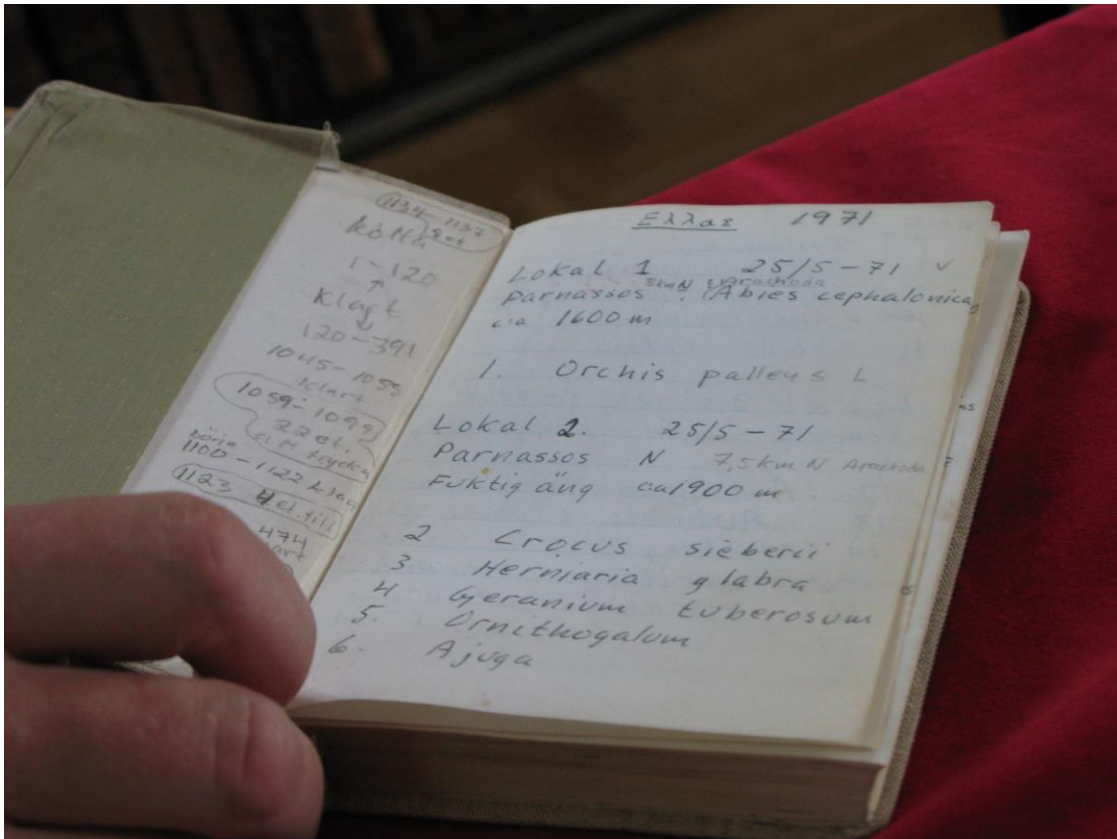 1134-1137
kolla
1-120
Klart
120-391
1045-1055
klart
1059-1099
22 et.
börja
1100-1122 klar
1123 4 et. till
474
Ελλας 1971
Lokal 1 25/5-71 v
5km N Arachoda
Parnassos (Abies cephalonica)
ca 1600 m
1. Orchis pallens L
Lokal 2. 25/5-71
Parnassos N 7,5km N Arachoda
Fuktig äng ca 1900 m
2 Crocus sieberii
3 Herniaria glabra
4 Geranium tuberosum
5. Ornithogalum
6. Ajuga